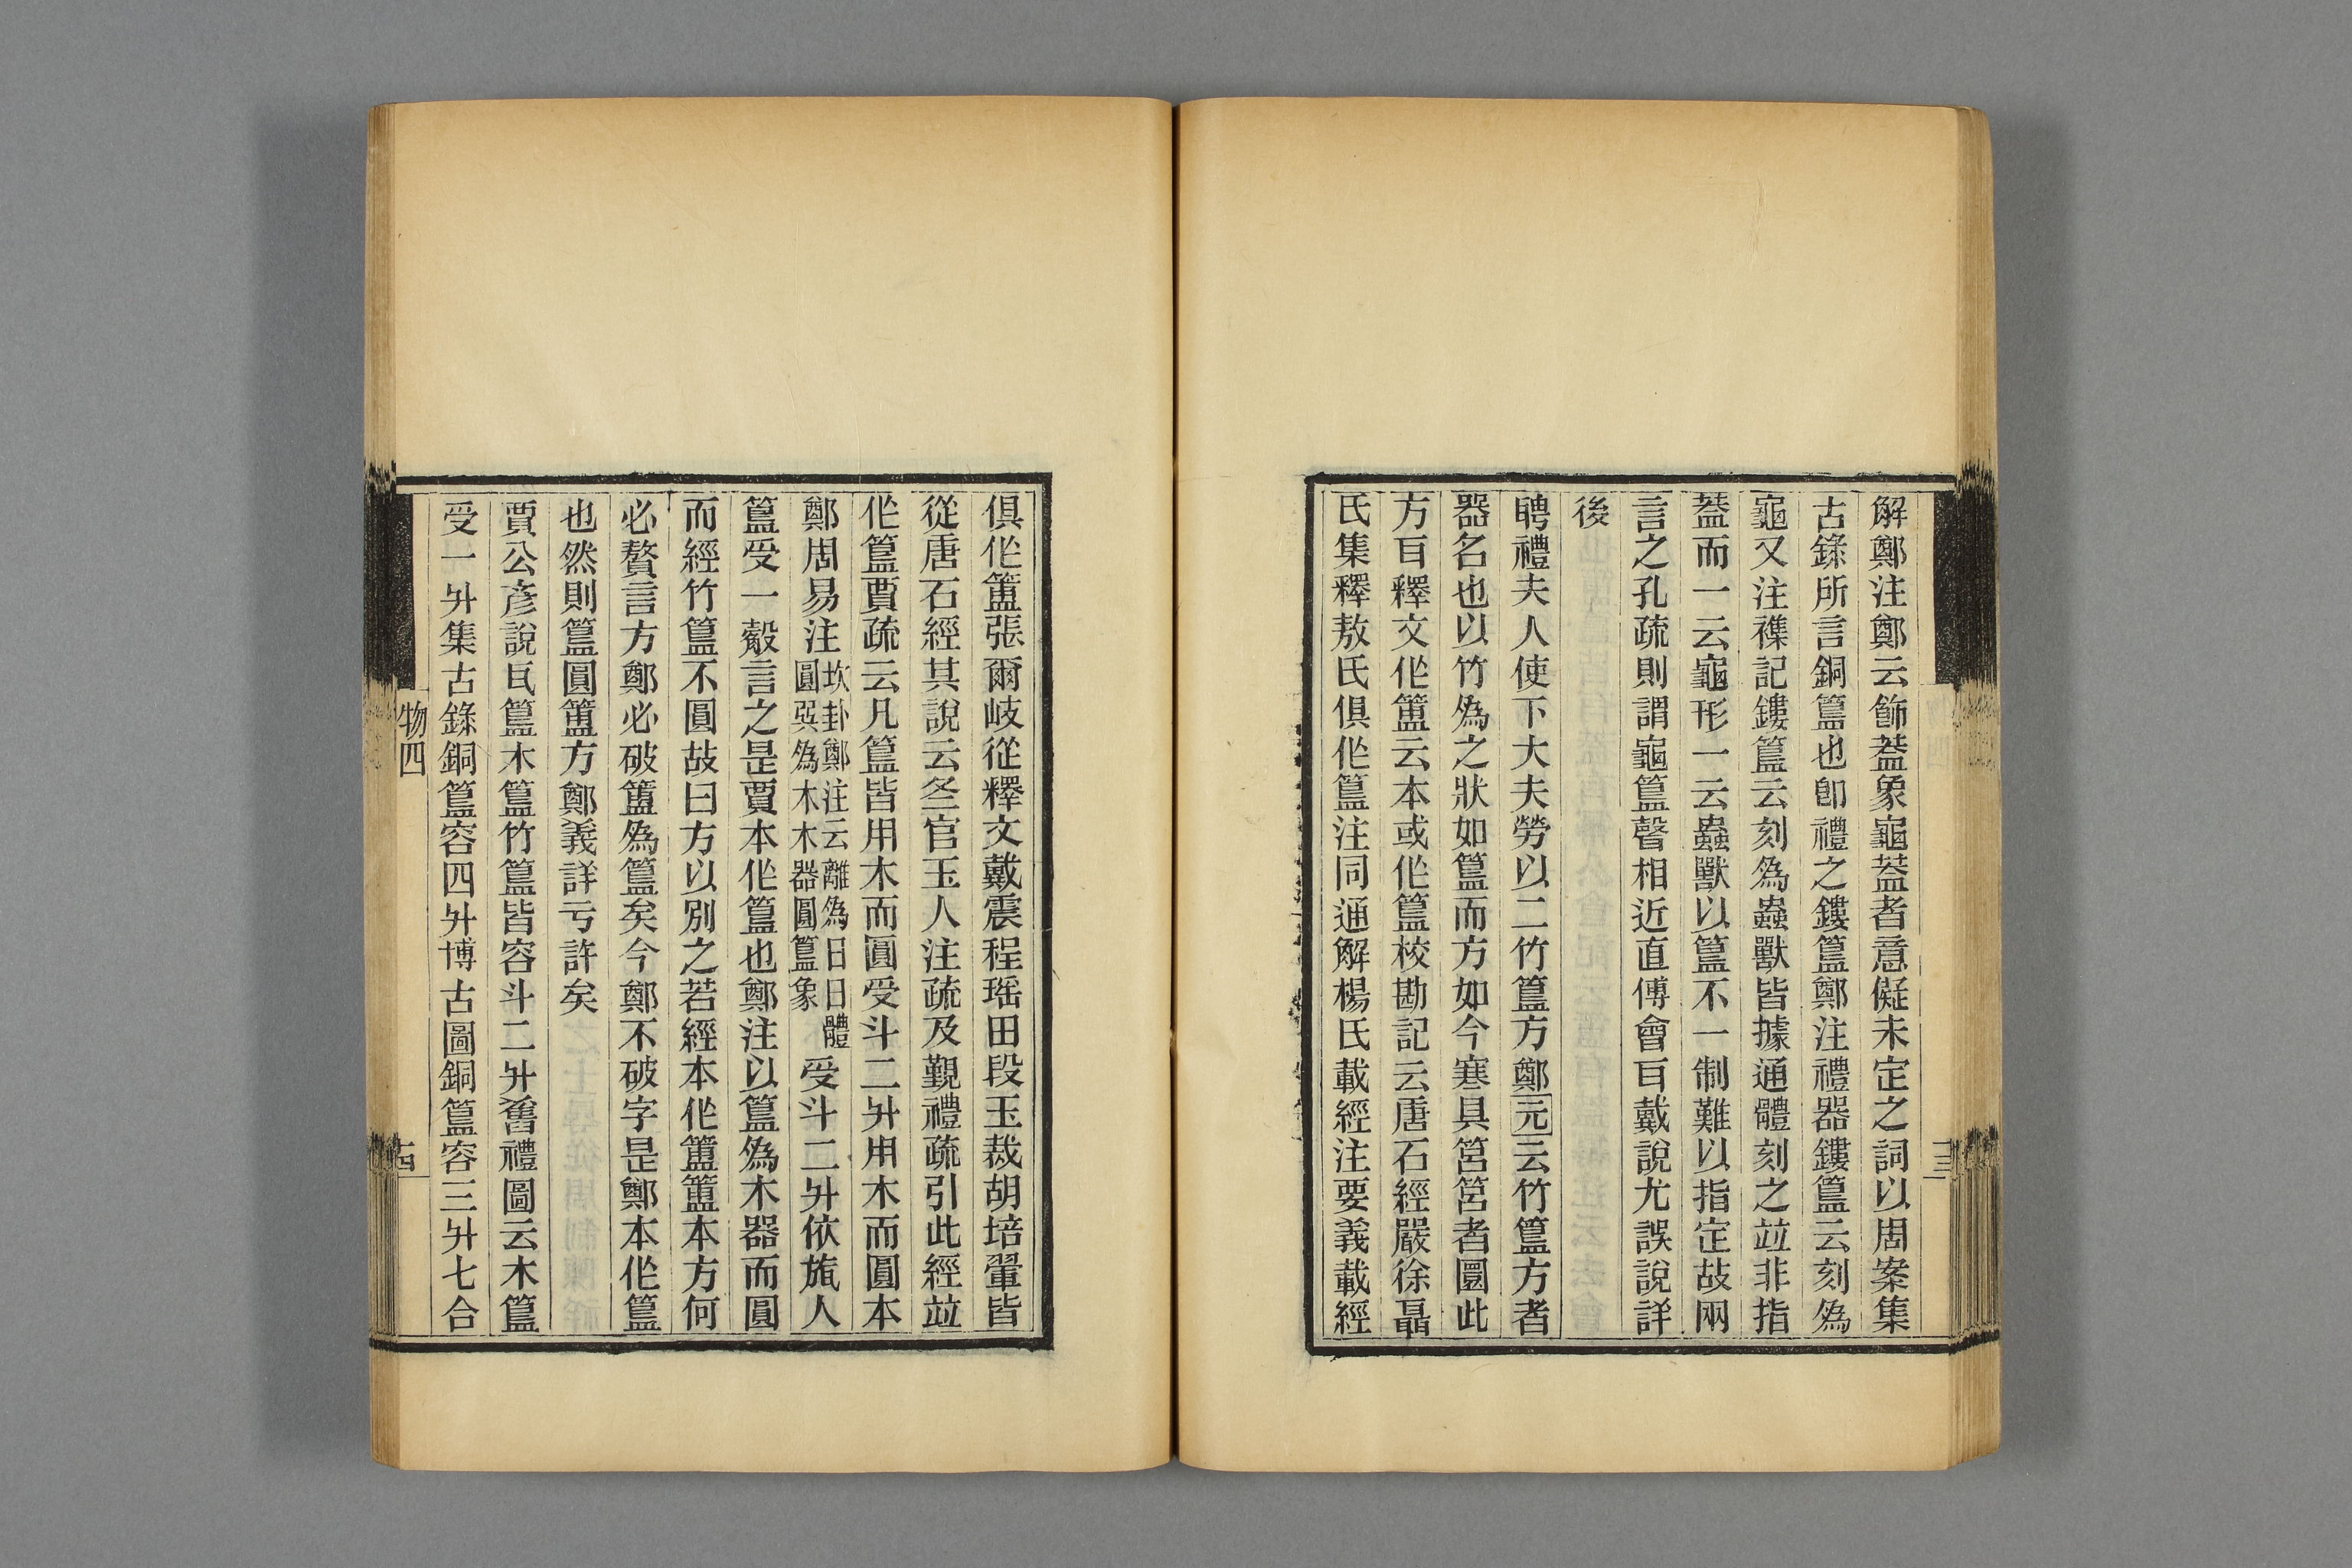 解鄭注鄭云飾葢象龜葢者意儗未定之詞以周案集
古錄所言銅簋也卽禮之鏤簋鄭注禮器鏤簋云刻爲
龜又注襍記鏤簋云刻爲蟲獸皆據通體刻之竝非指
葢而一云龜形一云蟲獸以簋不一制難以指定故兩
言之孔疏則謂龜簋聲相近直傅會㠯戴說尤誤說詳
後
聘禮夫人使下大夫勞以二竹簋方鄭元云竹簋方者
器名也以竹爲之狀如簋而方如今寒具筥筥者圜此
方㠯釋文作簠云本或作簋校勘記云唐石經嚴徐聶
氏集釋敖氏俱作簋注同通解楊氏載經注要義載經
俱作簠張爾岐從釋文戴震程瑤田段玉裁胡培翬皆
從唐石經其說云冬官玉人注疏及覲禮疏引此經竝
作簋賈疏云凡簋皆用木而圓受斗二升用木而圓本
鄭周易注坎卦鄭注云離爲日日體
圓巽爲木木器圓簋象
受斗二升依旊人
簋受一觳言之是賈本作簋也鄭注以簋爲木器而圓
而經竹簋不圓故曰方以別之若經本作簠簠本方何
必贅言方鄭必破簠爲簋矣今鄭不破字是鄭本作簋
也然則簋圓簠方鄭義詳亏許矣
賈公彥說瓦簋木簋竹簋皆容斗二升舊禮圖云木簋
受一升集古錄銅簋容四升博古圖銅簋容三升七合
物四
十四
十三